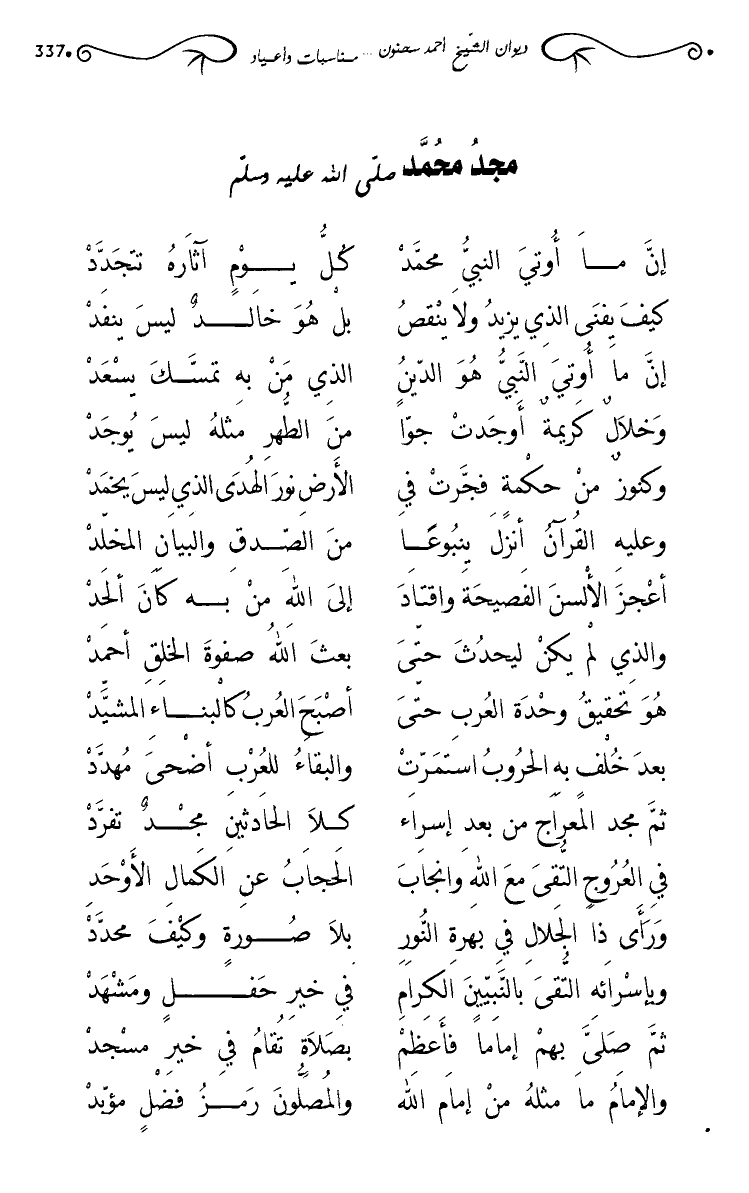 ديوان الشّيخ أحمد سحنون ... مناسبات وأعياد 337
مجدُ محُمَّد صلّى الله عليه وسلّم
إنَّ مــا أُوتيَ النبيُّ محمَّدْ كُلَّ يــوْمٍ آثَارهُ تتجَدَّدْ
كيفَ يفنَى الذي يزيدُ ولا ينْقصُ بل هُوَ خالــدٌ ليسَ ينفدْ
إنَّ ما أُوتيَ النَّبيُّ هُوَ الدّينُ الذي مَنْ به تمسَّــكَ يسْعَدْ
وَخلالٌ كريمةٌ أَوجَدتْ جوّا منَ الطُّهرِ مثلهُ ليسَ يُوجَدْ
وكنوزٌ منْ حكْمةٍ فجَّرتْ في الأَرضِ نورَ الهُدَى الذي ليسَ يخمَدْ
وعليه القرآنُ أنزل ينبُوعًــا منَ الصّــدقِ والبيانِ المخلَّدْ
أعْجزَ الألسنَ الفصيحَة واقتادَ إلىَ اللهِ منْ بــه كَانَ ألحَدْ
والذي لمْ يكنْ ليحدُثَ حتىَّ بعثَ اللهُ صفوةَ الخلقِ أحمدْ
هُوَ تحقيقُ وحْدَة العُربِ حتىَّ أصْبَحَ العُربُ كالبنــاء المشيَّدْ
بعدَ خُلْفٍ به الحروبُ استمَرّتْ والبقاءُ للعُرْبِ أضْحىَ مُهدَّدْ
ثمَّ مجد المعراجِ من بعد إسراء كــلاَ الحادثينِ مجْــدٌ تفرَّدْ
في العُرُوجِ التقىَ معَ اللهِ وانجابَ الحجابُ عنِ الكمالِ الأَوْحَدِ
وَرَأَى ذا الجلال في بهرة النُّورِ بلاَ صُــورةٍ وكيْفَ محدَّدْ
وبإسْرائه التُّقىَ بالنَّبيّينَ الكرامِ في خيرِ حَفــلٍ ومَشْهَدْ
ثمَّ صَلىَّ بهمْ إماماً فأَعظمْ بصَلاَةٍ تُقامُ في خيرِ مسْجدْ
والإمامُ ما مثلهُ منْ إمام الله والمُصلُّونَ رَمــزُ فضْلٍ مؤبّدْ